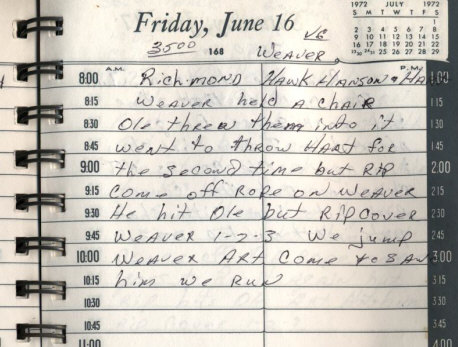 1972 JULY 1972
S M T W T F S
1
2 3 4 5 6 7 8
9 10 11 12 13 14 15
16 17 18 19 20 21 22
23/30 24/31 25 26 27 28 29
Friday, June 16
VG
3500 168 WEAVER
A.M. P.M.
8:00 RichMOND HAWK HANSON + HA 1:00
8:15 WEAVER held A CHAIR 1:15
8:30 Ole threw them into it 1:30
8:45 went to throw HART for 1:45
9:00 the second time but RIP 2:00
9:15 COME off ROPE ON WEAVER 2:15
9:30 He hit Ole but RIP COVER 2:30
9:45 WEAVER 1-2-3 We jump 2:45
10:00 WEAVER ART COME to SAV 3:00
10:15 him we RUN 3:15
10:30 3:30
10:45 3:45
11:00 4:00